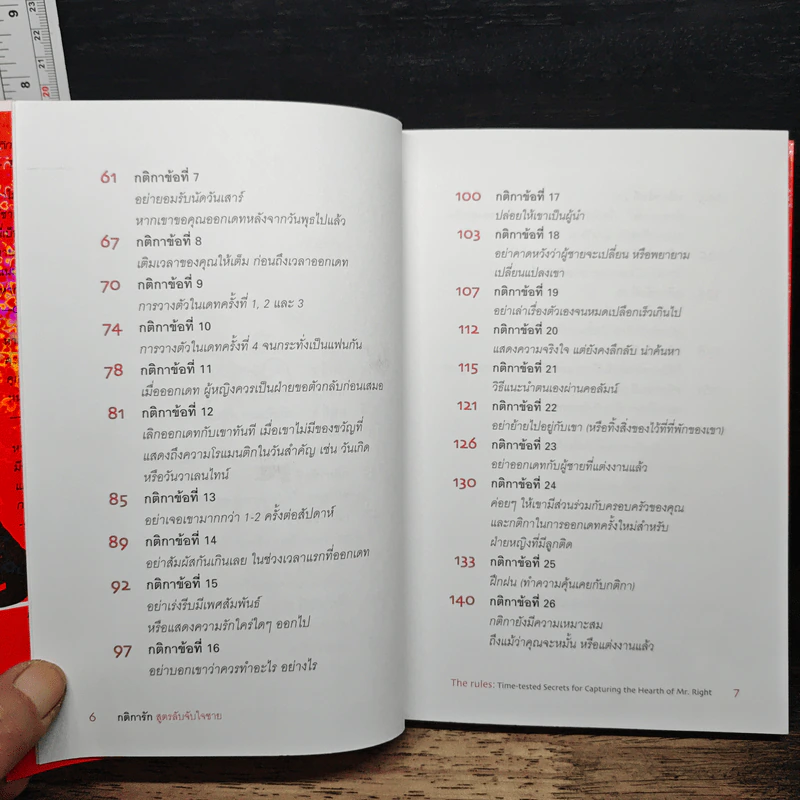 9
8
23
22
21
20
61 กติกาข้อที่ 7
อย่ายอมรับนัดวันเสาร์
หากเขาขอคุณออกเดทหลังจากวันพุธไปแล้ว
67 กติกาข้อที่ 8
เติมเวลาของคุณให้เต็ม ก่อนถึงเวลาออกเดท
70 กติกาข้อที่ 9
การวางตัวในเดทครั้งที่ 1, 2 และ 3
74 กติกาข้อที่ 10
การวางตัวในเดทครั้งที่ 4 จนกระทั่งเป็นแฟนกัน
78 กติกาข้อที่ 11
เมื่อออกเดท ผู้หญิงควรเป็นฝ่ายขอตัวกลับก่อนเสมอ
81 กติกาข้อที่ 12
เลิกออกเดทกับเขาทันที เมื่อเขาไม่มีของขวัญที่
แสดงถึงความโรแมนติกในวันสำคัญ เช่น วันเกิด
หรือวันวาเลนไทน์
85 กติกาข้อที่ 13
อย่าเจอเขามากกว่า 1-2 ครั้งต่อสัปดาห์
89 กติกาข้อที่ 14
อย่าสัมผัสกันเกินเลย ในช่วงเวลาแรกที่ออกเดท
92 กติกาข้อที่ 15
อย่าเร่งรีบมีเพศสัมพันธ์
หรือแสดงความรักใคร่ใดๆ ออกไป
97 กติกาข้อที่ 16
อย่าบอกเขาว่าควรทำอะไร อย่างไร
6 กติการัก สูตรลับจับใจชาย
100 กติกาข้อที่ 17
ปล่อยให้เขาเป็นผู้นำ
103 กติกาข้อที่ 18
อย่าคาดหวังว่าผู้ชายจะเปลี่ยน หรือพยายาม
เปลี่ยนแปลงเขา
107 กติกาข้อที่ 19
อย่าเล่าเรื่องตัวเองจนหมดเปลือกเร็วเกินไป
112 กติกาข้อที่ 20
แสดงความจริงใจ แต่ยังคงลึกลับ น่าค้นหา
115 กติกาข้อที่ 21
วิธีแนะนำตนเองผ่านคอลัมน์
121 กติกาข้อที่ 22
อย่าย้ายไปอยู่กับเขา (หรือทิ้งสิ่งของไว้ที่ที่พักของเขา)
126 กติกาข้อที่ 23
อย่าออกเดทกับผู้ชายที่แต่งงานแล้ว
130 กติกาข้อที่ 24
ค่อยๆ ให้เขามีส่วนร่วมกับครอบครัวของคุณ
และกติกาในการออกเดทครั้งใหม่สำหรับ
ฝ่ายหญิงที่มีลูกติด
133 กติกาข้อที่ 25
ฝึกฝน (ทำความคุ้นเคยกับกติกา)
140 กติกาข้อที่ 26
กติกายังมีความเหมาะสม
ถึงแม้ว่าคุณจะหมั้น หรือแต่งงานแล้ว
The rules: Time-tested Secrets for Capturing the Hearth of Mr. Right 7